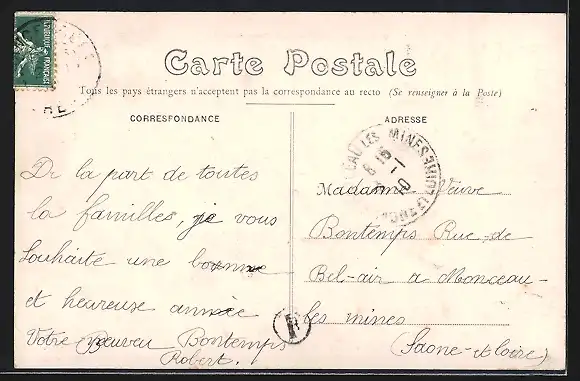 Carte Postale
Tous les pays étrangers n'acceptent pas la correspondance au recto (Se renseigner à la Poste)
CORRESPONDANCE
De la part de toutes
la familles, je vous
Souhaite une bonne
et heureuse année
Votre neuveu Bontemps
Robert.
ADRESSE
Madame Veuve
Bontemps Rue de
Bel-air a Monceau-
les mines
(Saone-et-loire)
R